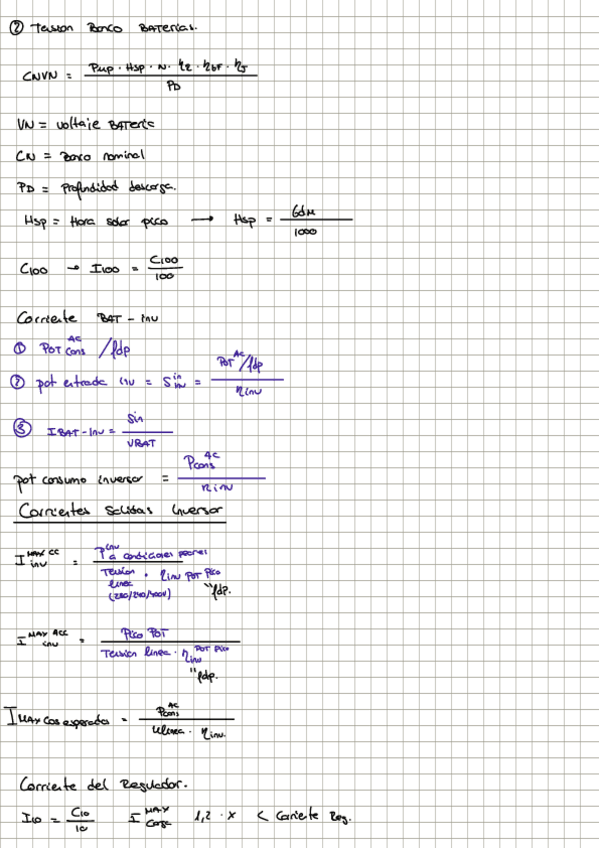 ② Tension Banco Baterias.
CNVN = Pmp · Hsp · N · η2 · ηbt · ηJ / PD
VN = Voltaje Bateria
CN = Banco nominal
PD = Profundidad descarga.
Hsp = Hora solar pico → Hsp = Gdm / 1000
C100 → I100 = C100 / 100
Corriente BAT - inv
① POT cons AC / fdp
② pot entrada inv = S inv in = POT AC / fdp / ηinv
③ I BAT-inv = Sin / VBAT
pot consumo inversor = Pcons AC / ηinv
Corrientes salidas inversor
I inv MAX CC = P inv a condiciones / Tension linea · ηinv POT pico
(230/240/400V) "fdp.
I inv MAX ACC = Pico POT / Tension linea · ηinv POT pico
"fdp.
I MAX cos esperados = Pcons AC / Ulinea · ηinv.
Corriente del Regulador.
I10 = C10 / 10 I MAX carga 1,2 · x < Corriente Reg.